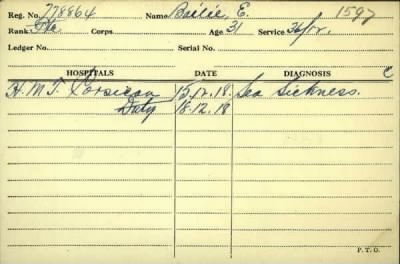 Reg. No. 778864 Name Bailie E. 1597
Rank Pte Corps Age 31 Service 36/12.
Ledger No. Serial No.
HOSPITALS DATE DIAGNOSIS C
H.M.T. Corsican 15.12.18. Sea Sickness.
Duty 18.12.18
P.T.O.